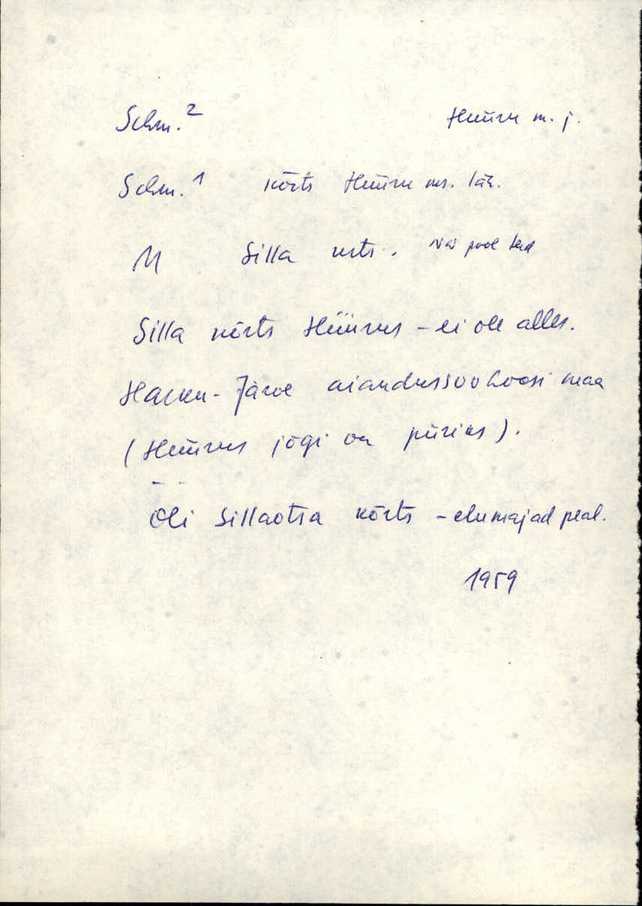 Schm.² Hüüru m. j.
Schm.¹ kõrts Hüüru ms. läh.
M Silla krts. pool teed
Silla kõrts Hüürus – ei ole alles.
Harku-Järve aiandussovhoosi maa
(Hüürus jõgi on piiriks).
Oli Sillaotsa kõrts – elumajad peal.
1959